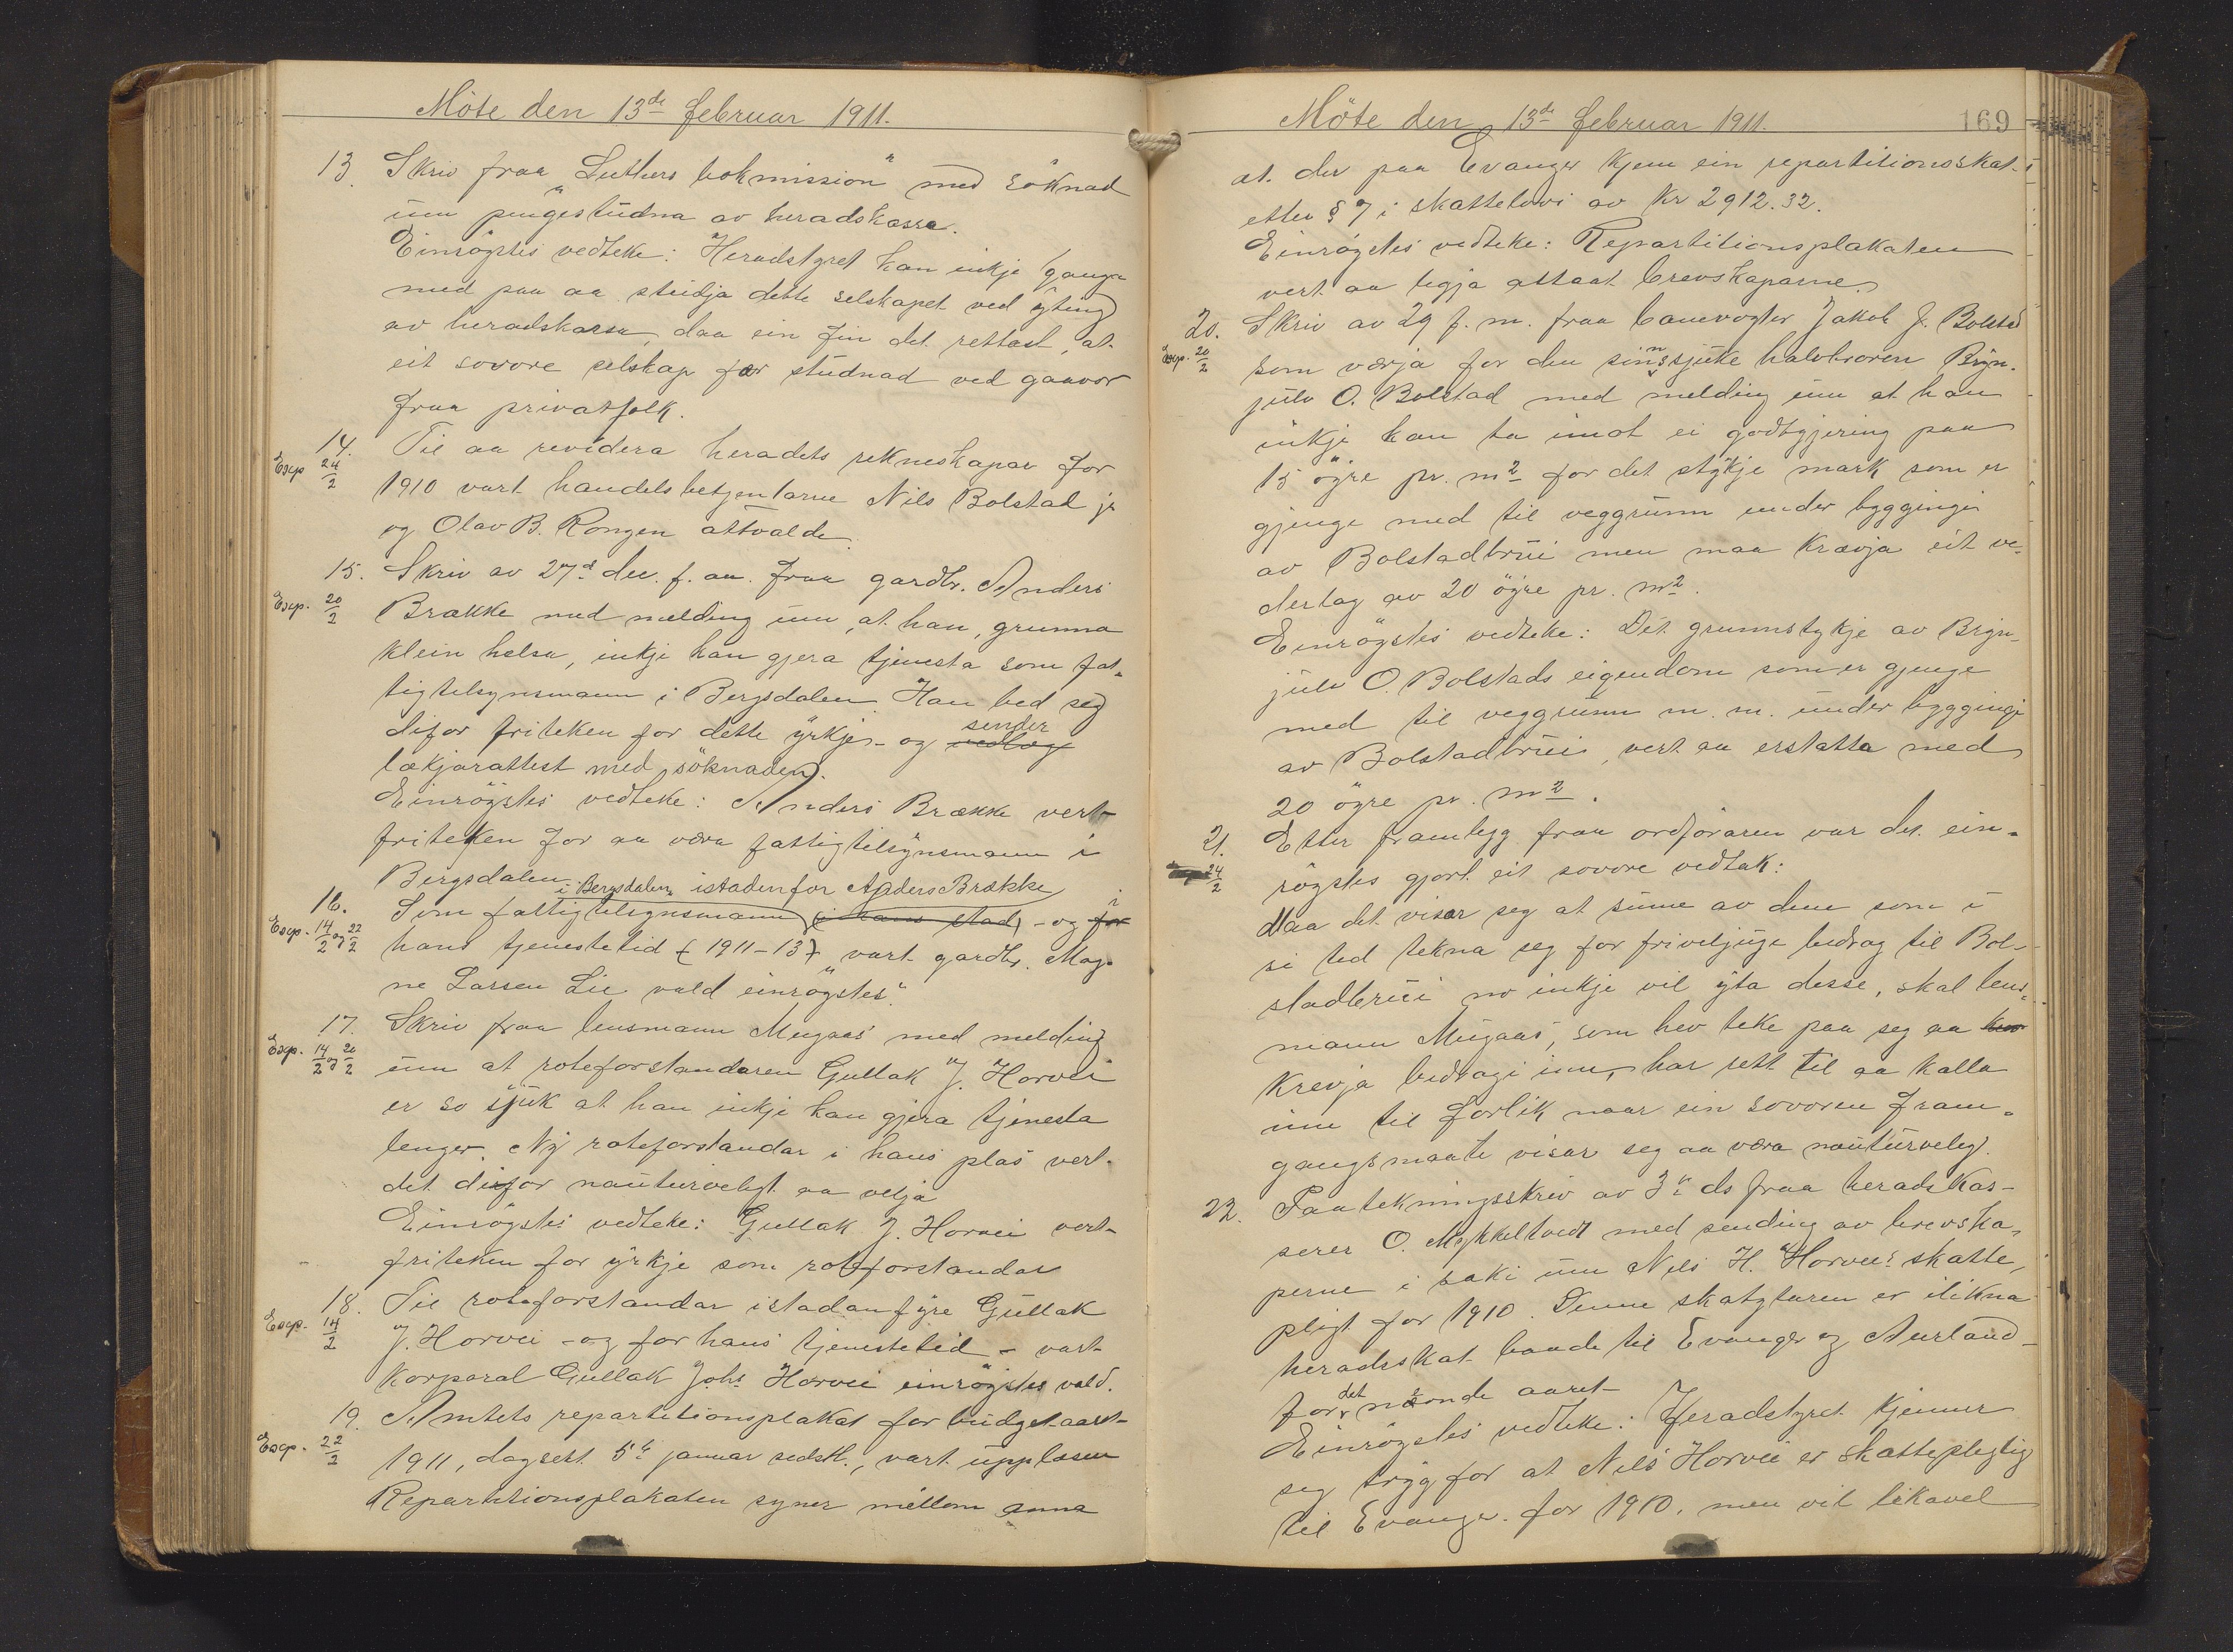 Möte den 13de februar 1911.
13. Skriv fraa "Luthers bokmission" med söknad
um pengestudna av heradskassa.
Einrögstes vedteke: Heradstyret kan inkje ganga
med paa aa studja dette selskapet ved yting
av heradskassa, daa ein fin det rettast, at
eit sovore selskap fær studnad ved gaavor
fraa privatfolk.
14. Til aa revidera heradets rekneskapar for
Exp 24/2
1910 vart handelsbetjentarne Nils Bolstad jr
og Olav B. Rongen attvalde.
15. Skriv av 27de des. f. aa. fraa gardbr. Anders
Exp. 20/2
Brække med melding um, at han, grunna
klein helsa, inkje kan gjera tjenesta som fat-
tigtilsynsmann i Bergsdalen. Han bed seg
difor friteken for dette yrkje - og vedlegg sender
lækjarattest med söknaden.
Einrögstes vedteke: Anders Brække vert
friteken for aa væra fattigtilsynsmann i
Bergsdalen.
i Bergsdalen istadenfor Anders Brække
16. Som fattigtilsynsmann (i hans stad) - og for
Exp. 14/2 og 22/2
hans tjenestetid (1911-13) vart gardbr. Mag-
ne Larsen Lie vald "einrögstes".
17. Skriv fraa lensmann Mugaas med melding
Exp. 14/2 og 20/2
um at roteforstandaren Gullak J. Horvei
er so sjuk at han inkje kan gjera tjenesta
lenger. Ny roteforstandar i hans plas vert
det difor nauturveligt aa velja
Einrögstes vedteke: Gullak J. Horvei vert
friteken for yrkje som roteforstandar
18. Til roteforstandar istadanfyre Gullak
Exp. 14/2
J. Horvei - og for hans tjenestetid - vart
korporal Gullak Johs Horvei einrögstes vald.
19. Amtets repartitionsplakat for budgetaaret
Exp. 22/2
1911, dagsett 5te januar sedstl., vart upplesen
Repartitionsplakaten syner millom anna
Möte den 13de februar 1911.
169
at der paa Evanger kjem ein repartitionsskat
etter § 7 i skattelovi av kr 2912.32.
Einrögstes vedteke: Repartitionsplakaten
vert aa legja attaat brevskaparne.
20. Skriv av 29 f. m. fraa banevogter Jakob J. Bolstad
Exp. 20/2
somværja for den sinnssjuke halvbroren Bryn-
julv O. Bolstad med melding um at han
inkje kan ta imot ei godtgjering paa
15 öyre pr. m2 for det stykje mark som er
gjenge med til veggrunn under byggingi
av Bolstadbrui men maa krævja eit ve-
derlag av 20 öyre pr. m2.
Einrögstes vedteke: Det grunnstykje av Bryn-
julv O. Bolstads eigendom som er gjenge
med til veggrunn m. m. under byggingi
av Bolstadbrui, vert aa erstatta med
20 öyre pr. m2.
21. Etter framlegg fraa ordföraren var det ein-
24/2
rögstes gjort eit sovore vedtak:
Daa det visar seg at sume av dem som i
si tid tekna seg for friviljuge bidrag til Bol-
stadbrui no inkje vil yta desse, skal lens-
mann Mugaas, som hev teke paa seg aa
krevja bidragi inn, har rett til aa kalla
inn til forlik naar ein sovoren fram-
gangsmaate visar seg aa væra nauturveleg.
22. Paatekningsskriv av 3de ds fraa heradskas-
serer O. Mykkeltvedt med sending av brevska-
perne i saki um Nils H. Horvei's skatte-
pligt for 1910. Denne skatytaren er ilikna
heradsskat baade til Evanger og Aurland
for det nemnde aaret
Einrögstes vedteke: Heradstyret kjenner
seg trygg for at Nils Horvei er skattepligtig
til Evanger for 1910, men vil likavel